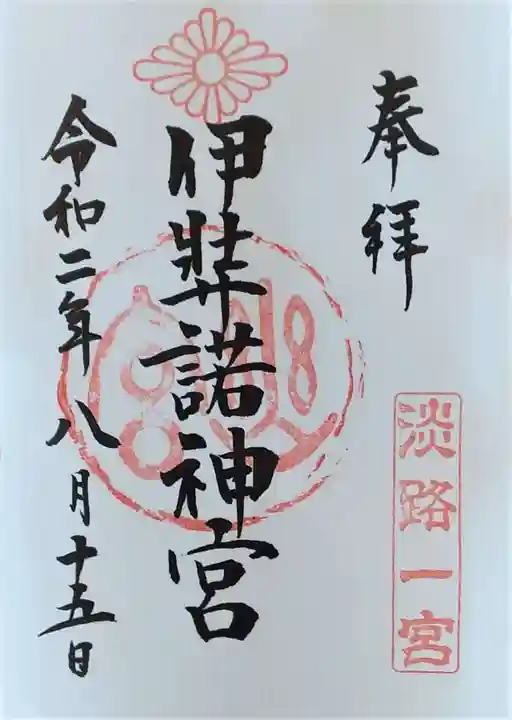 奉拝
淡路一宮
伊弉諾神宮
令和二年八月十五日